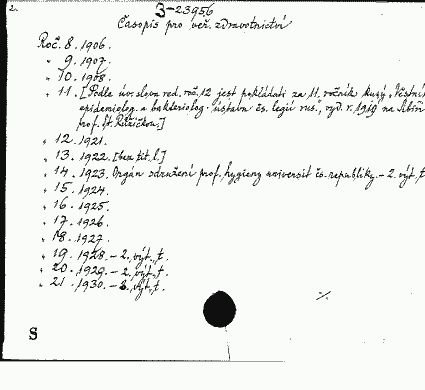 2.
3-23956
Časopis pro veř. zdravotnictví
Roč. 8. 1906.
" 9. 1907.
" 10. 1908.
" 11. [Podle úv. slova red. roč. 12 jest pokládati za 11. ročník kusý "Věstník
epidemiolog. a bakteriolog. ústavu čs. legií rus.", vyd. r. 1919 na Sibiři
prof. St. Růžičkou.]
" 12. 1921.
" 13. 1922. [bez tit. l.]
" 14. 1923. Orgán sdružení prof. hygieny universit čs. republiky. - 2. výt., t.
" 15. 1924.
" 16. 1925.
" 17. 1926.
" 18. 1927.
" 19. 1928. - 2. výt., t.
" 20. 1929. - 2. výt., t.
" 21. 1930. - 2. výt., t.
./.
S